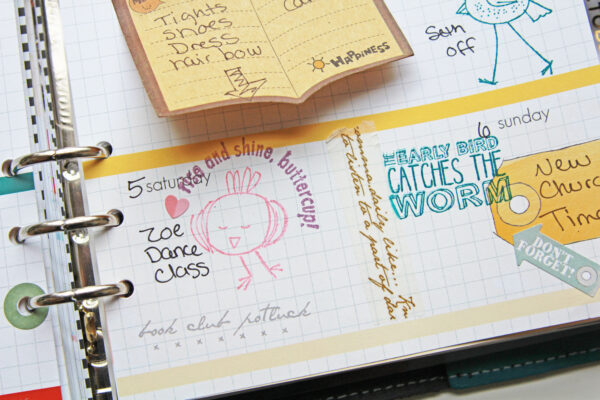 Tights
Shoes
Dress
hair bow
Happiness
Seth
off
5 saturday
rise and shine, buttercup!
Zoe
Dance
Class
book club potluck
to listen to a pat of
THE EARLY BIRD
CATCHES THE
WORM
6 sunday
New
Church
Time
DON'T
FORGET!